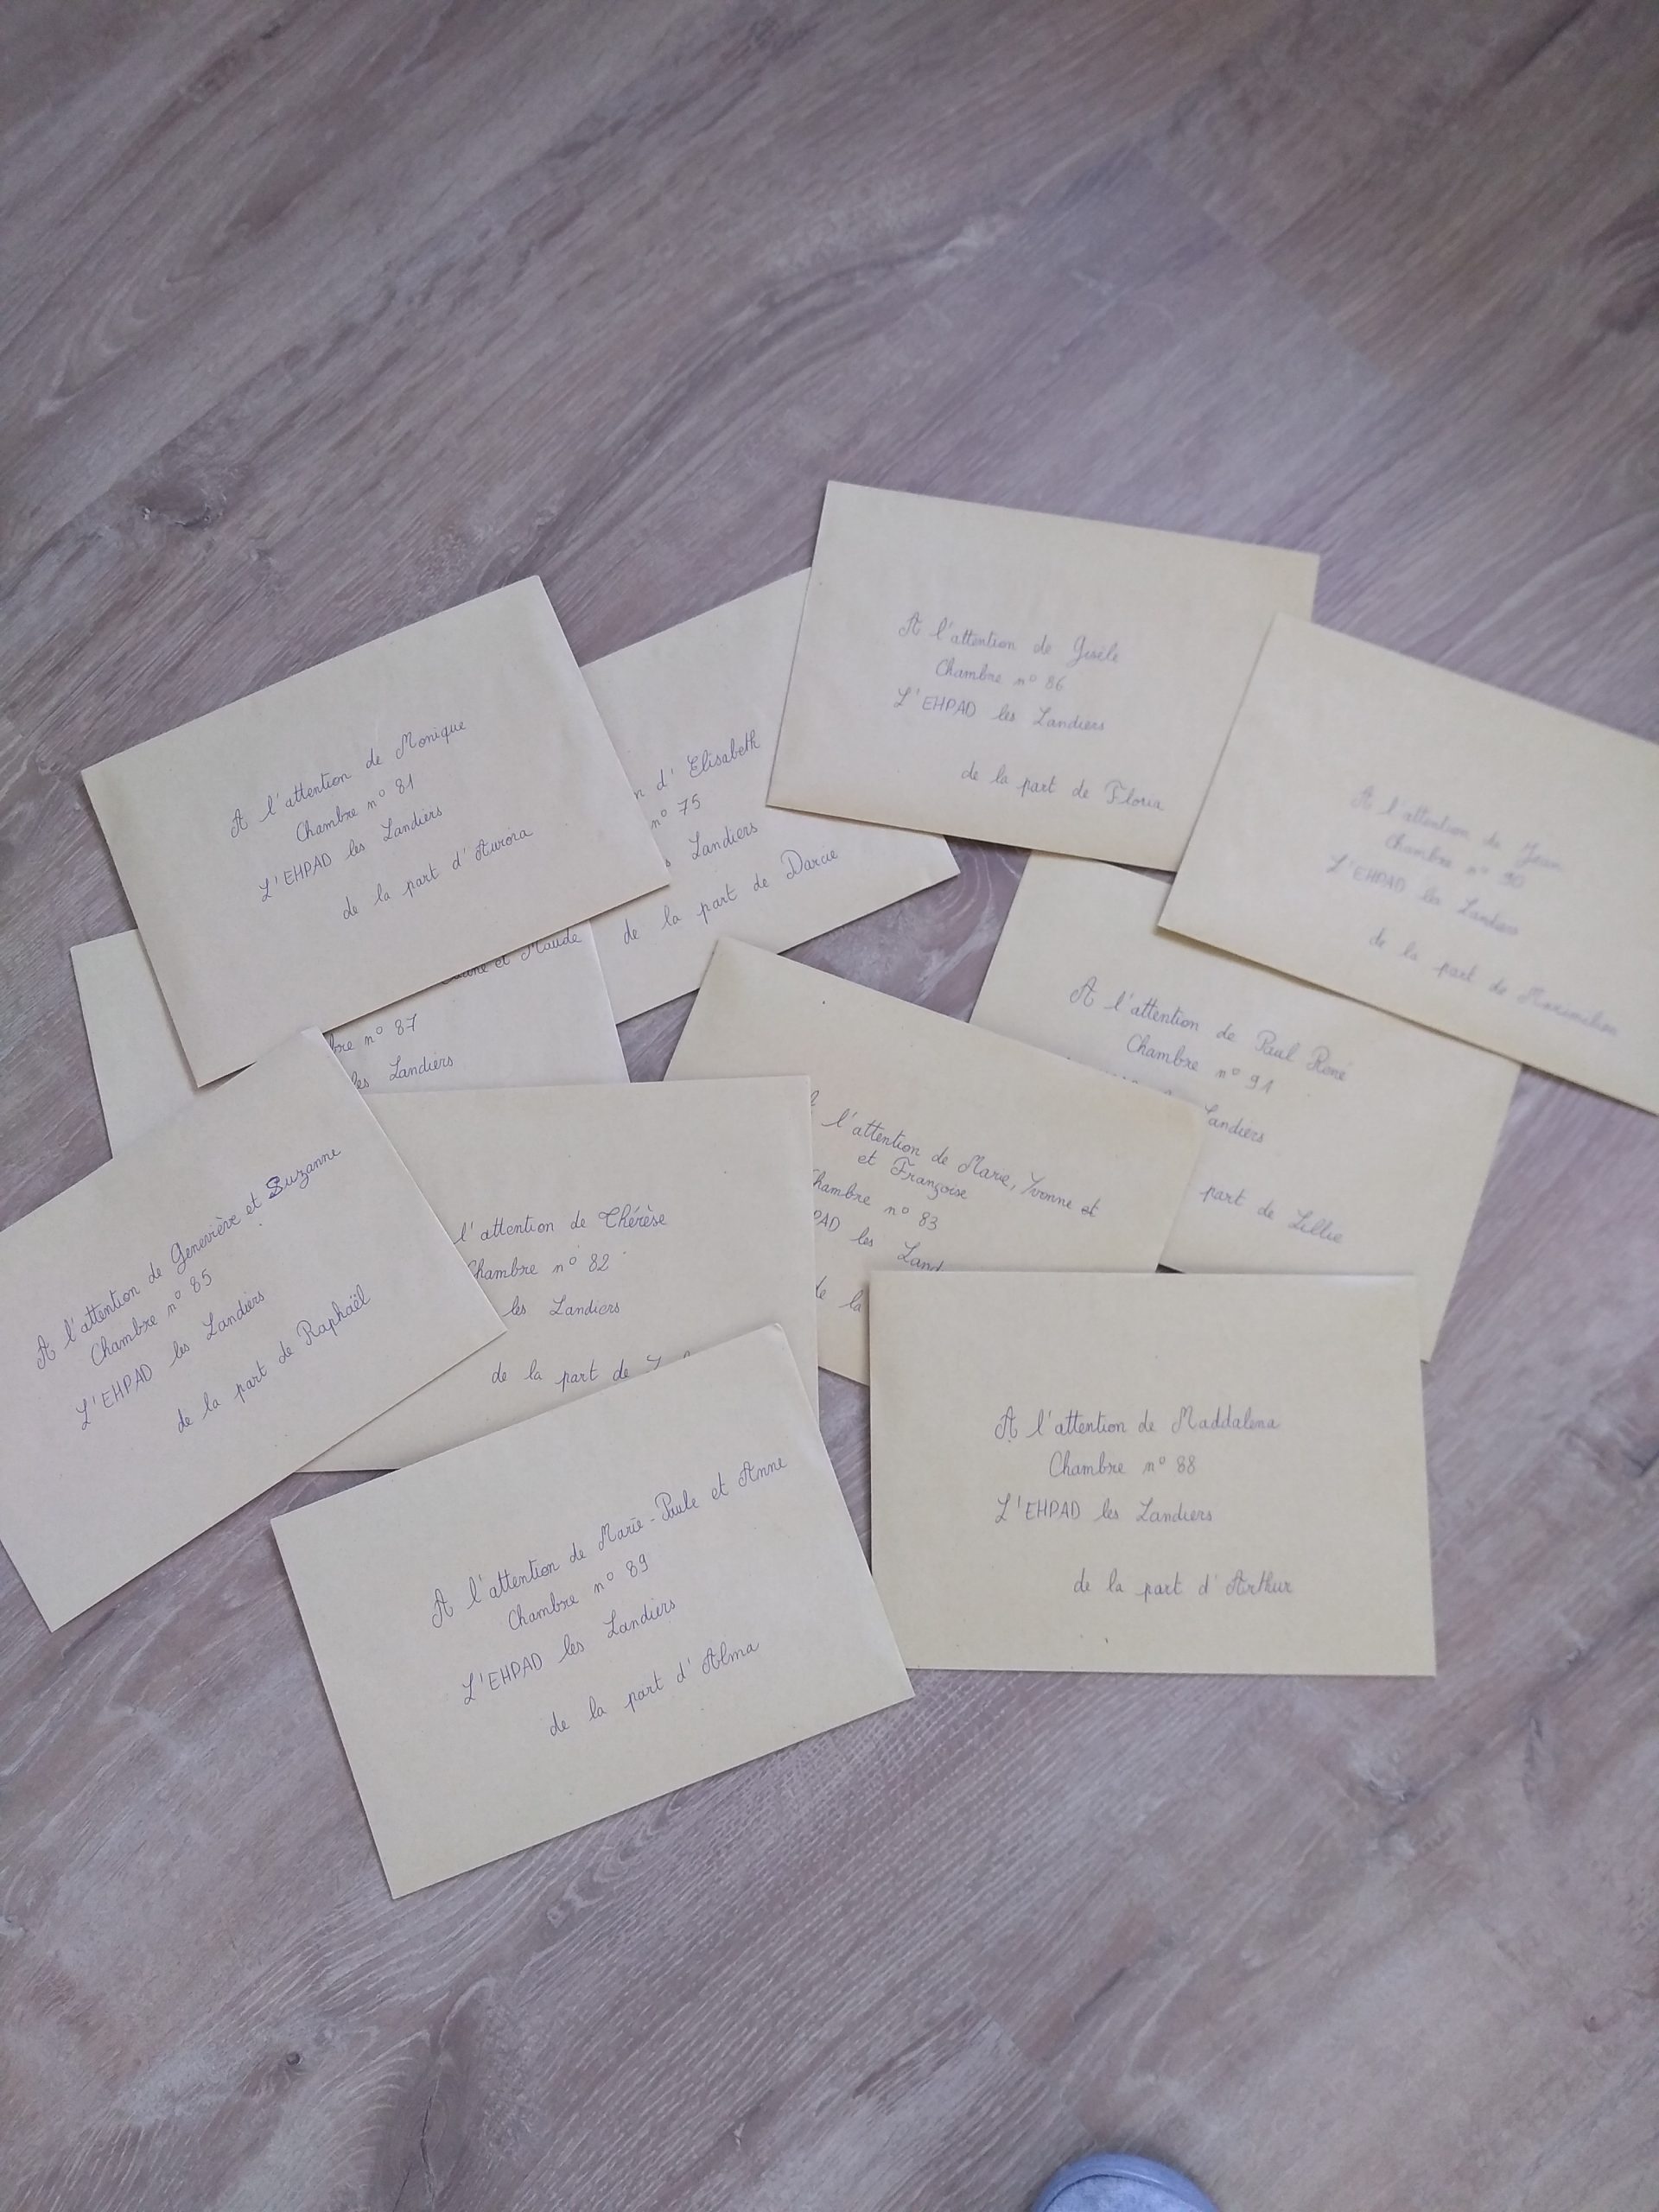 A l'attention de Gisèle
Chambre n° 86
L'EHPAD les Landiers
de la part de Floria
A l'attention de Monique
Chambre n° 81
L'EHPAD les Landiers
de la part d'Aurora
d'Elisabeth
n° 75
Landiers
de la part de Darcie
A l'attention de Jean
Chambre n° 90
L'EHPAD les Landiers
de la part de
et Maude
n° 87
les Landiers
A l'attention de Paul René
Chambre n° 91
Landiers
part de Lillie
l'attention de Marie, Yvonne et
et Françoise
Chambre n° 83
les
de la
A l'attention de Geneviève et Suzanne
Chambre n° 85
L'EHPAD les Landiers
de la part de Raphaël
l'attention de Thérèse
Chambre n° 82
les Landiers
de la part de
A l'attention de Marie-Paule et Anne
Chambre n° 89
L'EHPAD les Landiers
de la part d'Alma
A l'attention de Maddalena
Chambre n° 88
L'EHPAD les Landiers
de la part d'Arthur